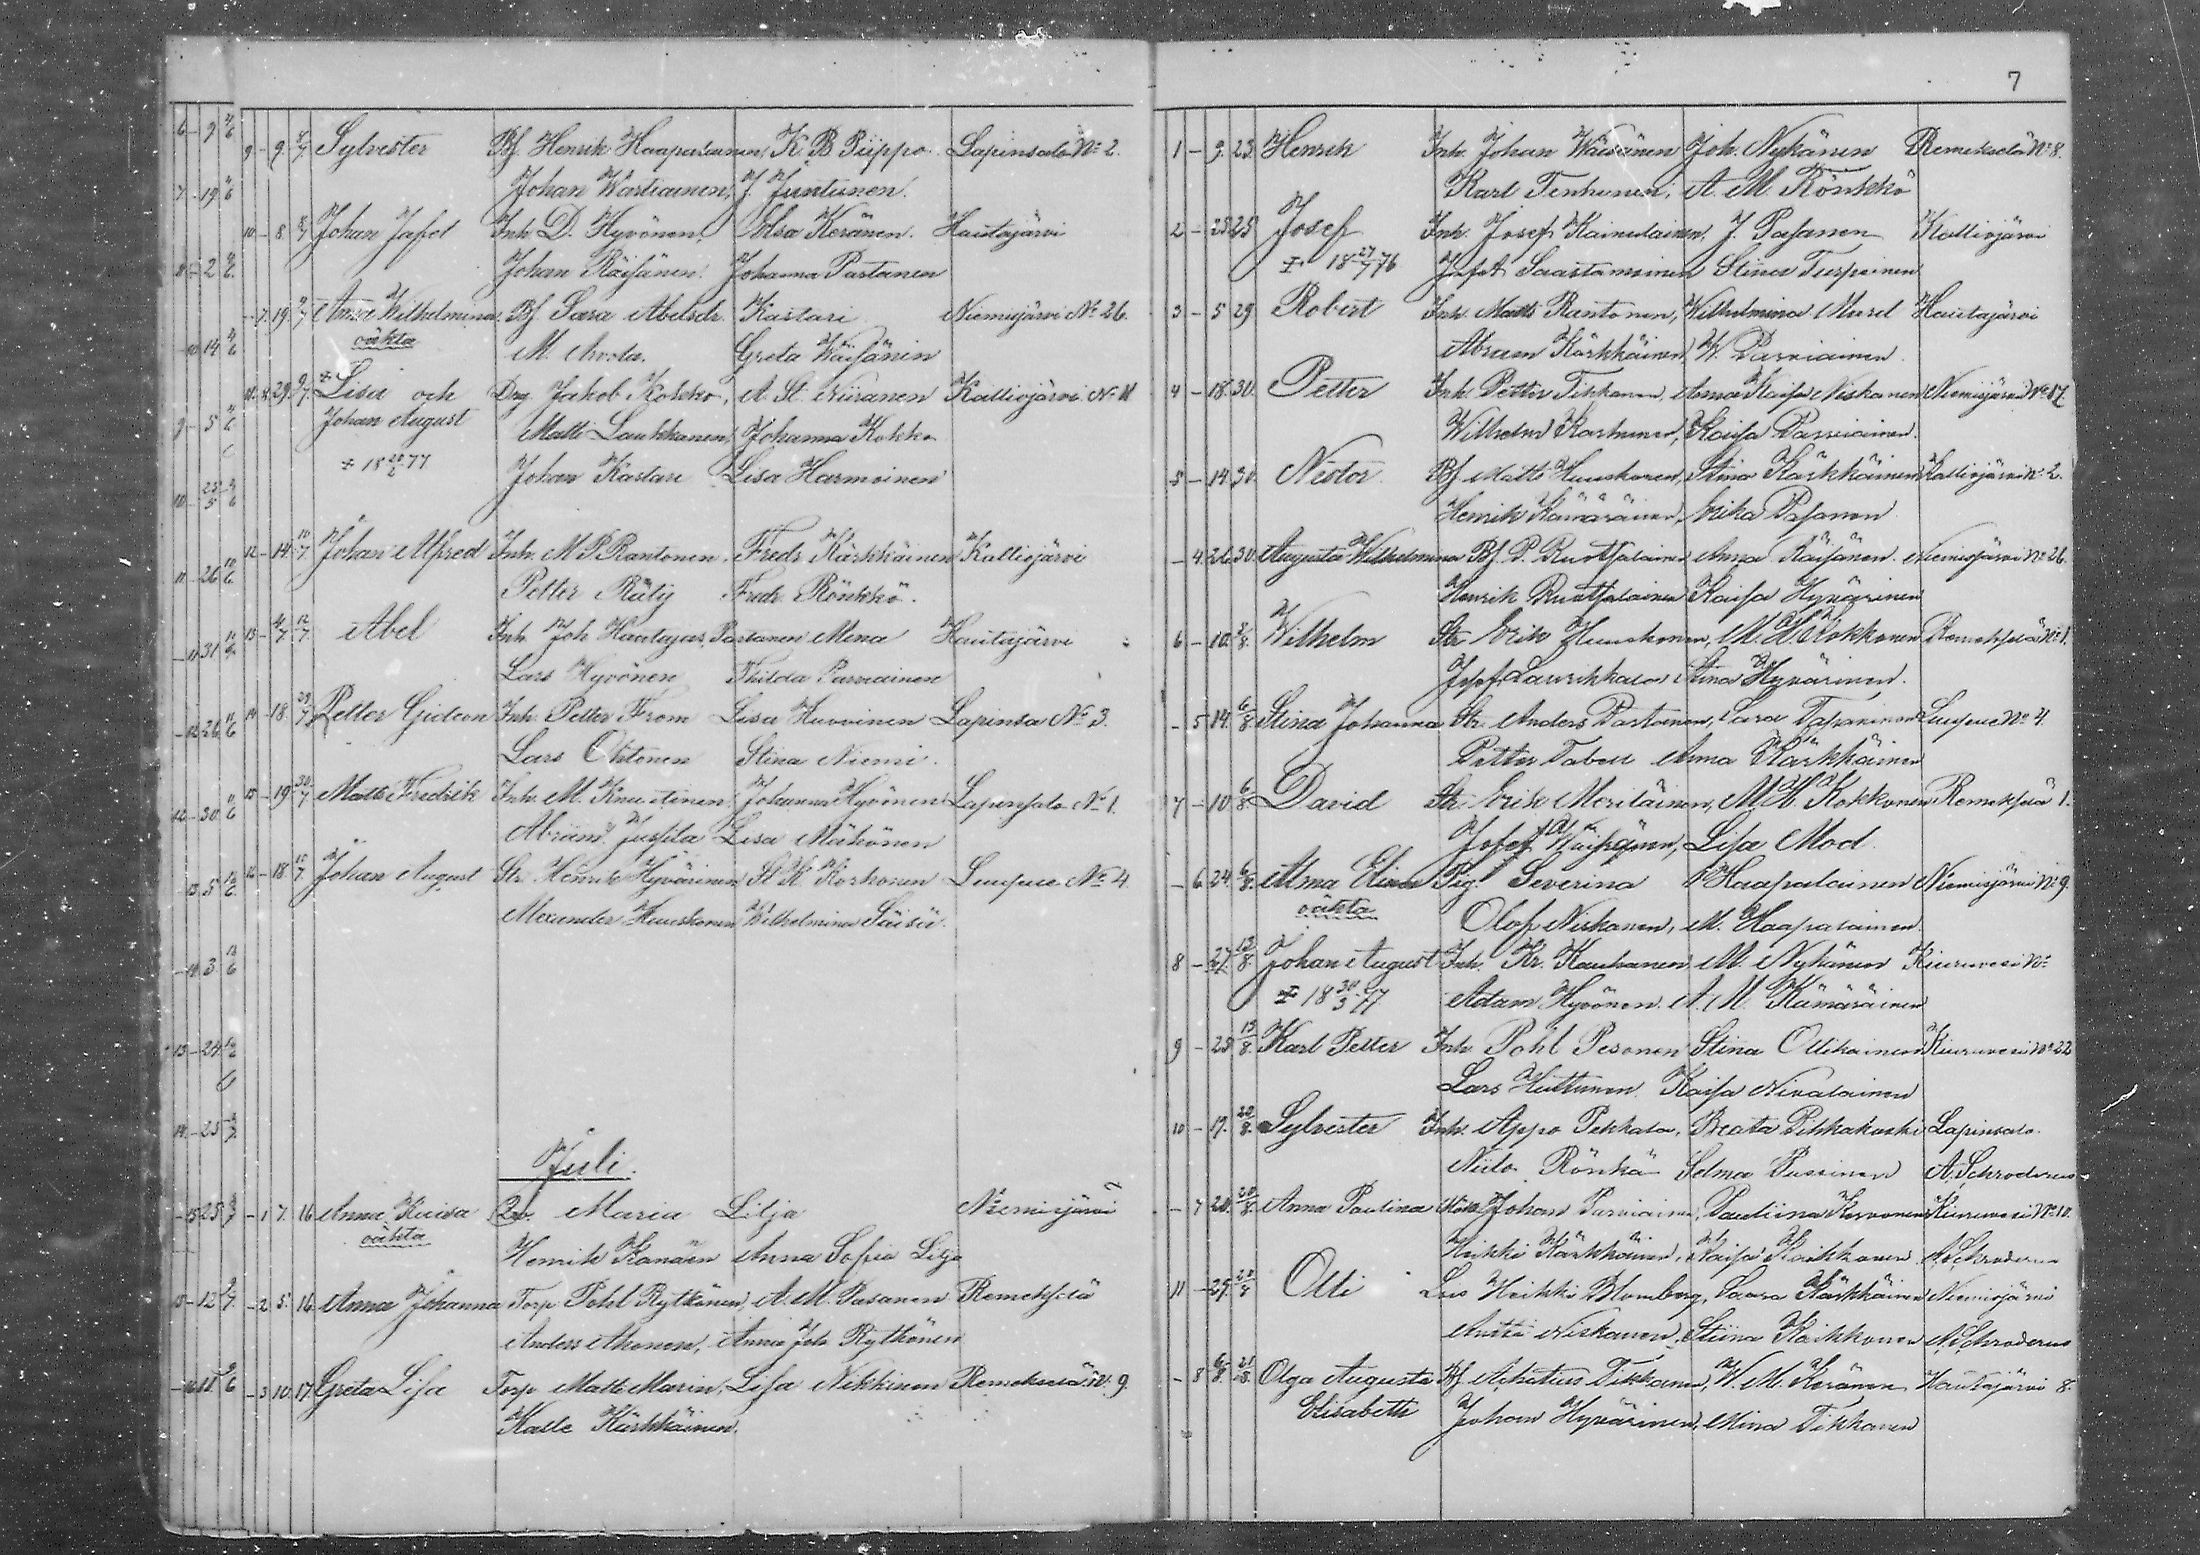 9 - 9 Sylvester Bf. Henrik Haapalainen, K. B. Piippo Lapinsalo No 2.
Johan Wartiainen, J. Juntunen.
10 - 8 Johan Jafet Inh. D. Hyvönen, Elsa Keränen. Hautajärvi
Johan Räisänen. Johanna Partanen
- 7 19 Anna Wilhelmina Bf. Sara Abelsdr. Kastari Niemisjärvi No 26.
oäkta M. Greta Wäisänen
11 8 29 9/7 Lisa och Drg Jakob Kokko, A. St. Niiranen Kalliojärvi No 11
Johan August Matti Laukkanen, Johanna Kokko
Johan Kastari Lisa Harmoinen
12 - 14 Johan Alfred Inh. M. P. Rantonen. Fredr. Kärkkäinen Kalliojärvi
Petter Räty Fredr. Rönkkö.
13 - Abel Inh. Joh. Hautajas, Partanen Mina Hautajärvi
Lars Hyvönen Thilda Parviainen
14 - 18 29/7 Petter Gideon Inh. Petter From Lisa Huovinen Lapinsa No 3.
Lars Ohtonen Stina Niemi.
15 - 19 30/7 Matts Fredrik Inh. M. Knuutinen, Johanna Hyvönen Lapinsalo No 1.
Abram Jussila Lisa Mähönen
- 18 Johan August Str. Henrik Hyvärinen, St. K. Korhonen Luupue No 4
Alexander Huuskonen Wilhelmina Säisä.
Juli.
- 1 7. 16 Anna Kaisa Maria Lilja Niemisjärvi
oäkta Henrik Kanäen Anna Sofia Lilja
- 2 5. 16 Anna Johanna Torp. Pohl Rytkönen, A. M. Pasanen Remekselä
Anders Ahonen, Anna Joh. Rytkönen
- 3 10. 17. Greta Lisa Torp Matti Marin, Lisa Nikkinen Remekselä No 9.
Kalle Kärkkäinen.
7
1 - 9. 23. Henrik Inh. Johan Wäisänen Joh. Nykänen Remekselä No 8.
Karl Tenhunen, A. M. Rönkkö
2 - 23 25 Josef Inh. Josef Kainulainen, J. Pasanen Kalliojärvi
18 27/7 76 Jafet Saastamoinen Stina Turpeinen
3 - 5 29 Robert Inh. Matts Rantonen, Wilhelmina Mursd Hautajärvi
Abram Kärkkäinen, W. Parviainen
4 - 18. 30. Petter Inh. Petter Tikkanen, Anna Kaisa Niskanen Niemisjärvi No 17.
Wilhelm Karhunen, Kaisa Parviainen.
5 - 14. 30. Nestor. Bf. Matts Huuskonen, Stina Kärkkäinen Kalliojärvi No 2.
Henrik Kämäräinen, Erika Pasanen
- 4. 26. 30. Augusta Wilhelmina Bf. P. Ruotsalainen Anna Räisänen Niemisjärvi No 26.
Henrik Ruotsalainen Kaisa Hyvärinen
6 - 10. Wilhelm Str. Erik Huuskonen, M. H. Kokkonen Remekselä No 1.
Josef Laurikkala Stina Hyvärinen.
- 5 14. 6/8 Stina Johanna Str. Anders Partanen, Sara Tapaninen Luupue No 4.
Petter Tabell Anna Kärkkäinen
7 - 10 6/8 David Str. Erik Meriläinen, M. H. Kokkonen Remekselä 1.
Josef Waissänen, Lisa Mod
- 6. 24. 6/8. Alma Elina Pig. Severina Haapalainen Niemisjärvi No 9.
oäkta Olof Niskanen, M. Haapalainen.
8 - 27. 13/8. Johan August Inh. Kr. Kauhanen M. Nykänen Kiuruvesi No
18 30/3 77 Adam Hyvönen. A. M. Kämäräinen
9 - 23 13/8. Karl Petter Inh. Pohl Pesonen Stina Ollikainen Kiuruvesi No 22
Lars Huttunen Kaisa Nivalainen
10 - 17. 20/8. Sylvester Inh. Appo Pekkala, Beata Pihkakoski Lapinsalo.
Niilo Rönkä Selma Pussinen A. Schroderus
- 7 20. 20/8 Anna Paulina Johan Parviainen, Pauliina Korvonen Kiuruvesi No 10.
Heikki Kärkkäinen, Kaisa Kaikkonen A. Schroderus
11 - 29. 20/8 Olli Heikki Blomberg, Saara Kärkkäinen Niemisjärvi
Antti Niskanen, Stiina Kaikkonen A. Schroderus
- 8 6/8. Olga Augusta Bf. Ahatius Tikkanen, W. M. Keränen Hautajärvi 8.
Elisabeth Johan Hyvärinen, Mina Tikkanen